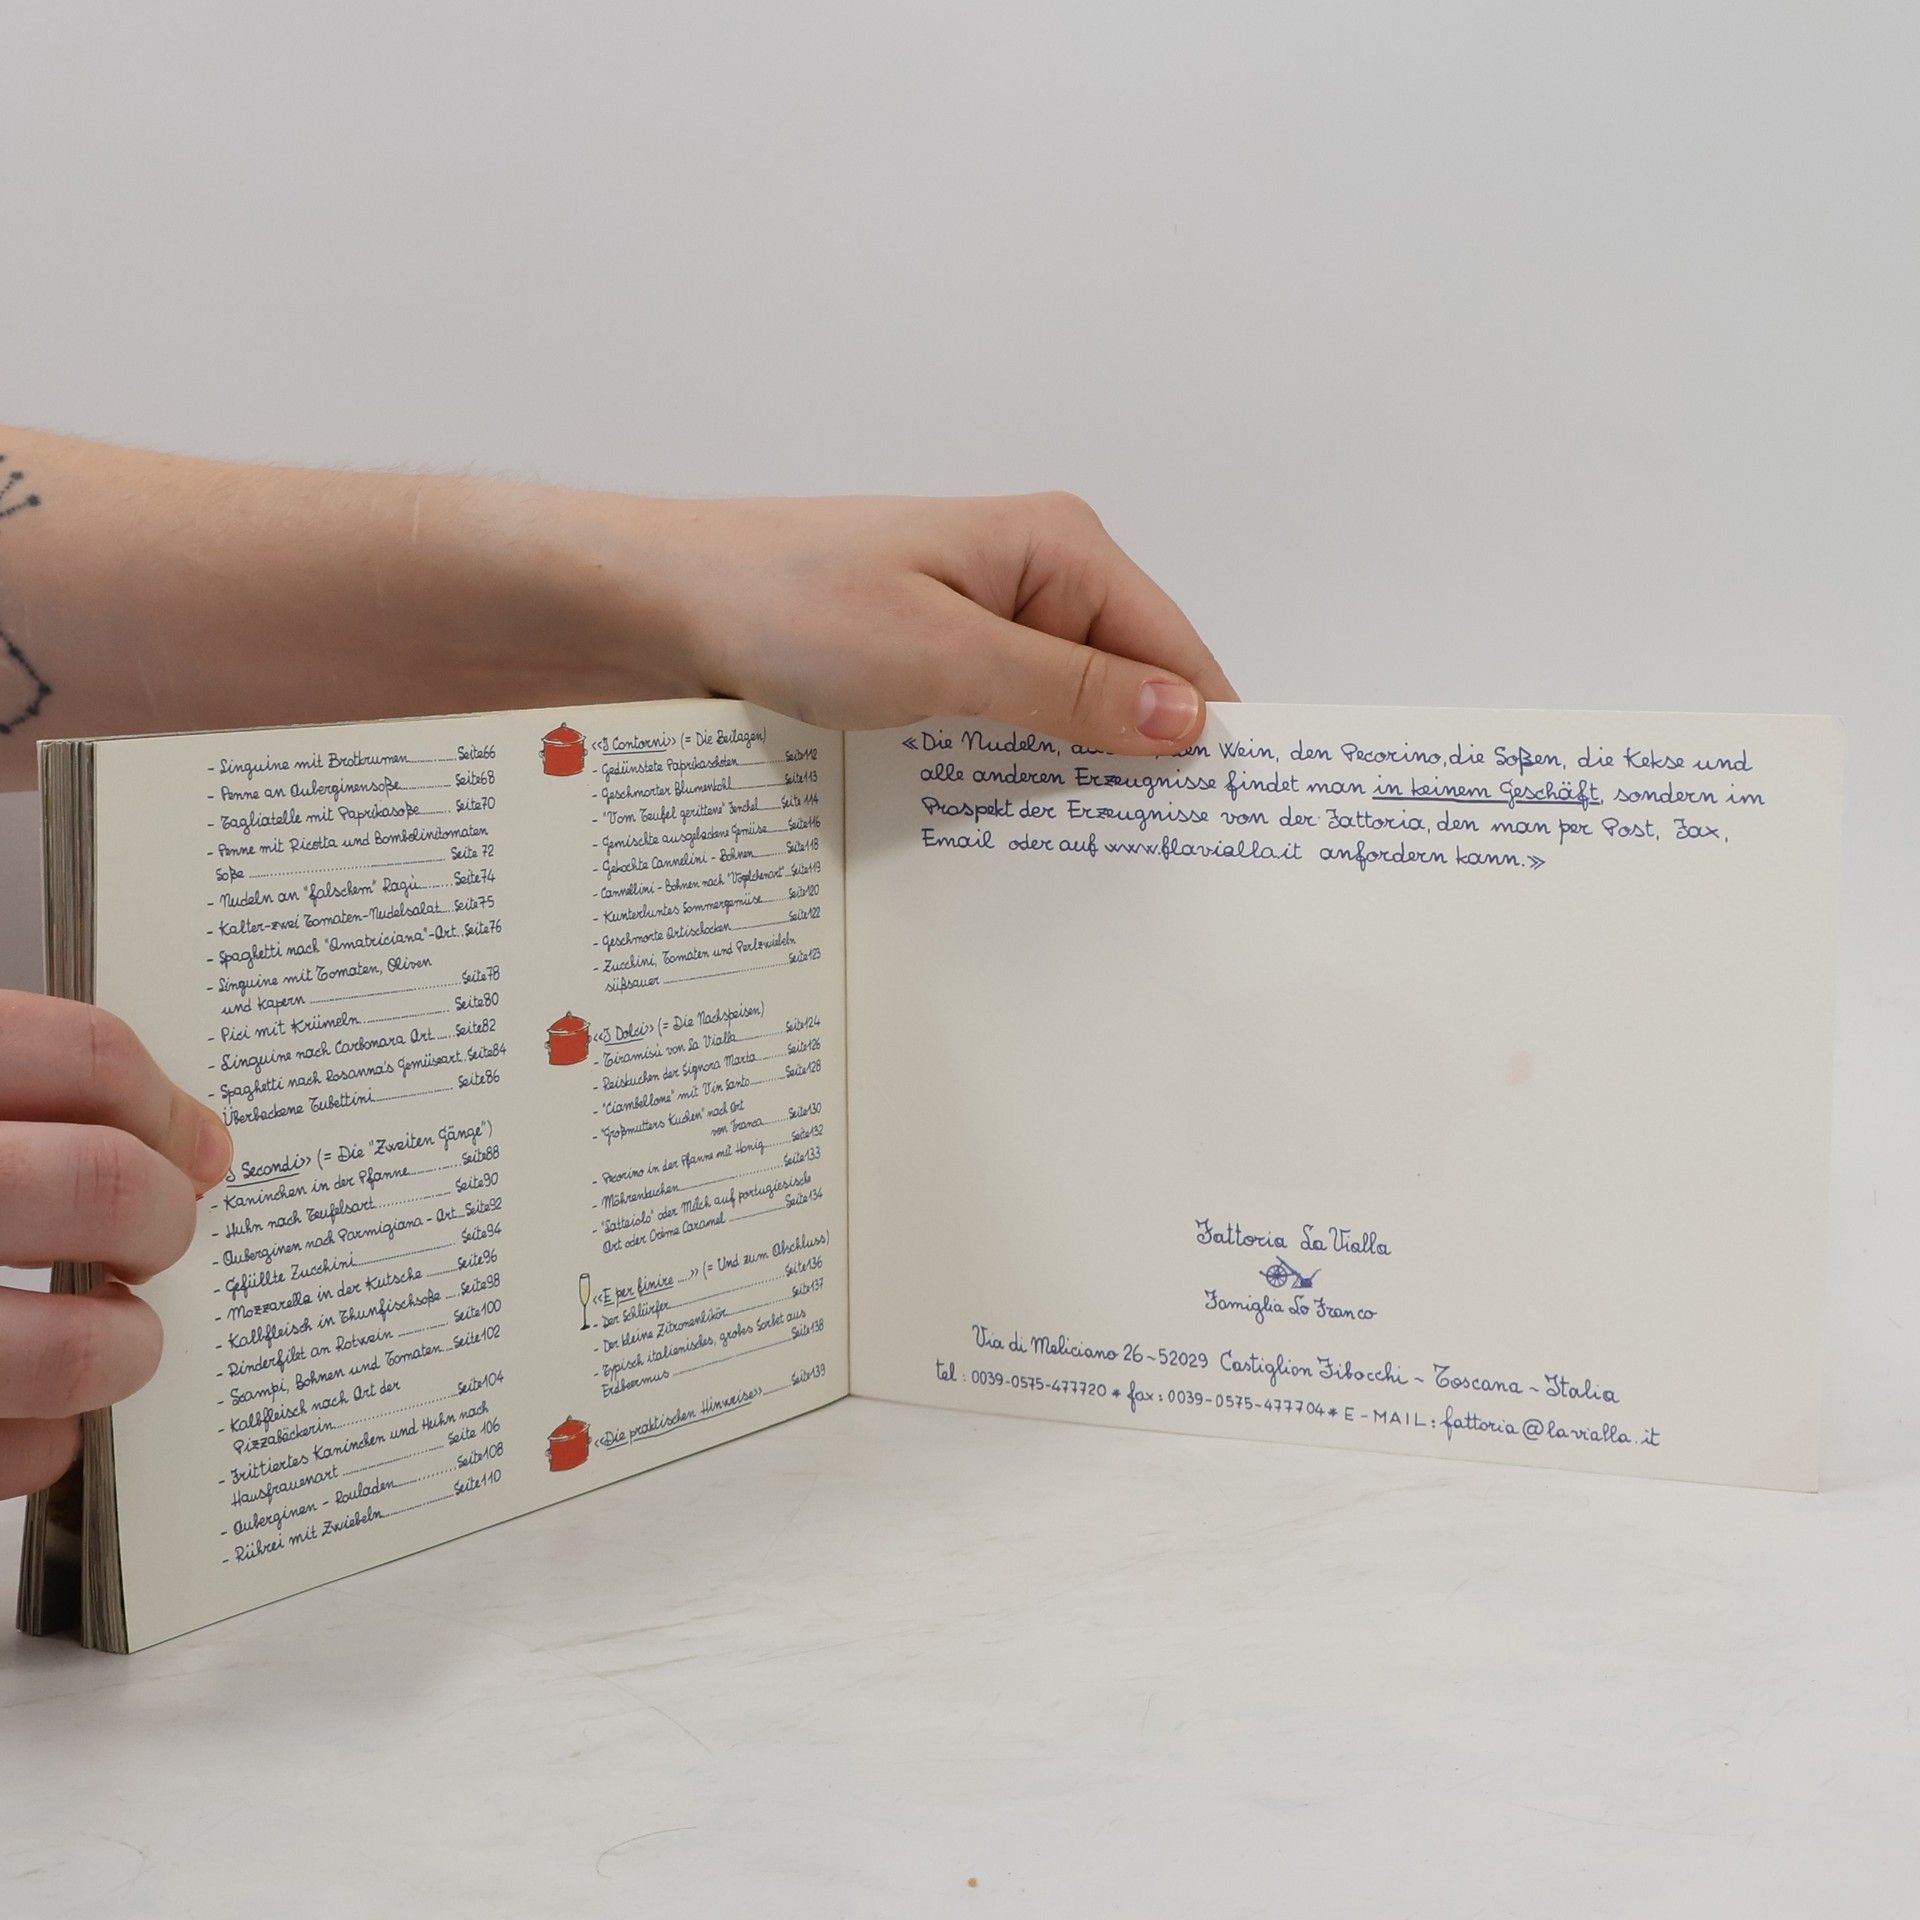 - Linguine mit Brotkrumen............Seite66
- Penne an Auberginensoße............Seite68
- Tagliatelle mit Paprikasoße........Seite70
- Penne mit Ricotta und Bombolinitomaten
Soße ............ Seite 72
- Nudeln an "falschem" Ragù........Seite74
- Kalter-zwei Tomaten-Nudelsalat...Seite75
- Spaghetti nach "Amatriciana"-Art..Seite76
- Linguine mit Tomaten, Oliven
und Kapern ............ Seite78
- Pici mit Krümeln............ Seite80
- Linguine nach Carbonara Art......Seite82
- Spaghetti nach Rosanna's Gemüseart..Seite84
Überbackene Tubettini............ Seite86
I Secondi» (= Die "Zweiten Gänge")
- Kaninchen in der Pfanne............Seite88
- Huhn nach Teufelsart............Seite90
- Auberginen nach Parmigiana - Art...Seite92
- Gefüllte Zucchini............Seite94
- Mozzarella in der Kutsche ........Seite96
- Kalbfleisch in Thunfischsoße ....Seite98
- Rinderfilet an Rotwein ............Seite100
- Scampi, Bohnen und Tomaten...Seite102
- Kalbfleisch nach Art der
Pizzabäckerin............Seite104
- Frittiertes Kaninchen und Huhn nach
Hausfrauenart ............ Seite 106
- Auberginen - Rouladen............Seite108
- Rührei mit Zwiebeln............Seite110
«I Contorni» (= Die Beilagen)
- Gedünstete Paprikaschoten............Seite112
- Geschmorter Blumenkohl............Seite113
- "Vom Teufel gerittene" Fenchel....Seite 114
- Gemischte ausgebackene Gemüse....Seite116
- Gekochte Cannelini - Bohnen........Seite118
- Cannellini - Bohnen nach "Vögelchenart"..Seite119
- Kunterbuntes Sommergemüse........Seite120
- Geschmorte Artischocken............Seite122
- Zucchini, Tomaten und Perlzwiebeln
süßsauer ............Seite123
«I Dolci» (= Die Nachspeisen)
- Tiramisù von La Vialla............Seite124
- Reiskuchen der Signora Marta........Seite126
- "Ciambellone" mit Vin Santo........Seite128
- "Großmutters Kuchen" nach Art
von Franca........Seite130
- Pecorino in der Pfanne mit Honig....Seite132
- Möhrenkuchen............Seite133
- "Latteiolo" oder Milch auf portugiesische
Art oder Crème Caramel ............Seite134
«E per finire ....» (= Und zum Abschluss)
- Der Schlürfer............Seite136
- Der kleine Zitronenlikör............Seite137
- Typisch italienisches, grobes Sorbet aus
Erdbeermus ............Seite138
«Die praktischen Hinweise»........Seite139
«Die Nudeln, den Wein, den Pecorino, die Soßen, die Kekse und
alle anderen Erzeugnisse findet man in keinem Geschäft, sondern im
Prospekt der Erzeugnisse von der Fattoria, den man per Post, Fax,
Email oder auf www.flavialla.it anfordern kann.»
Fattoria La Vialla
Famiglia Lo Franco
Via di Meliciano 26~52029 Castiglion Fibocchi ~ Toscana ~ Italia
tel : 0039-0575-477720 * fax : 0039-0575-477704 * E-MAIL : fattoria@lavialla.it